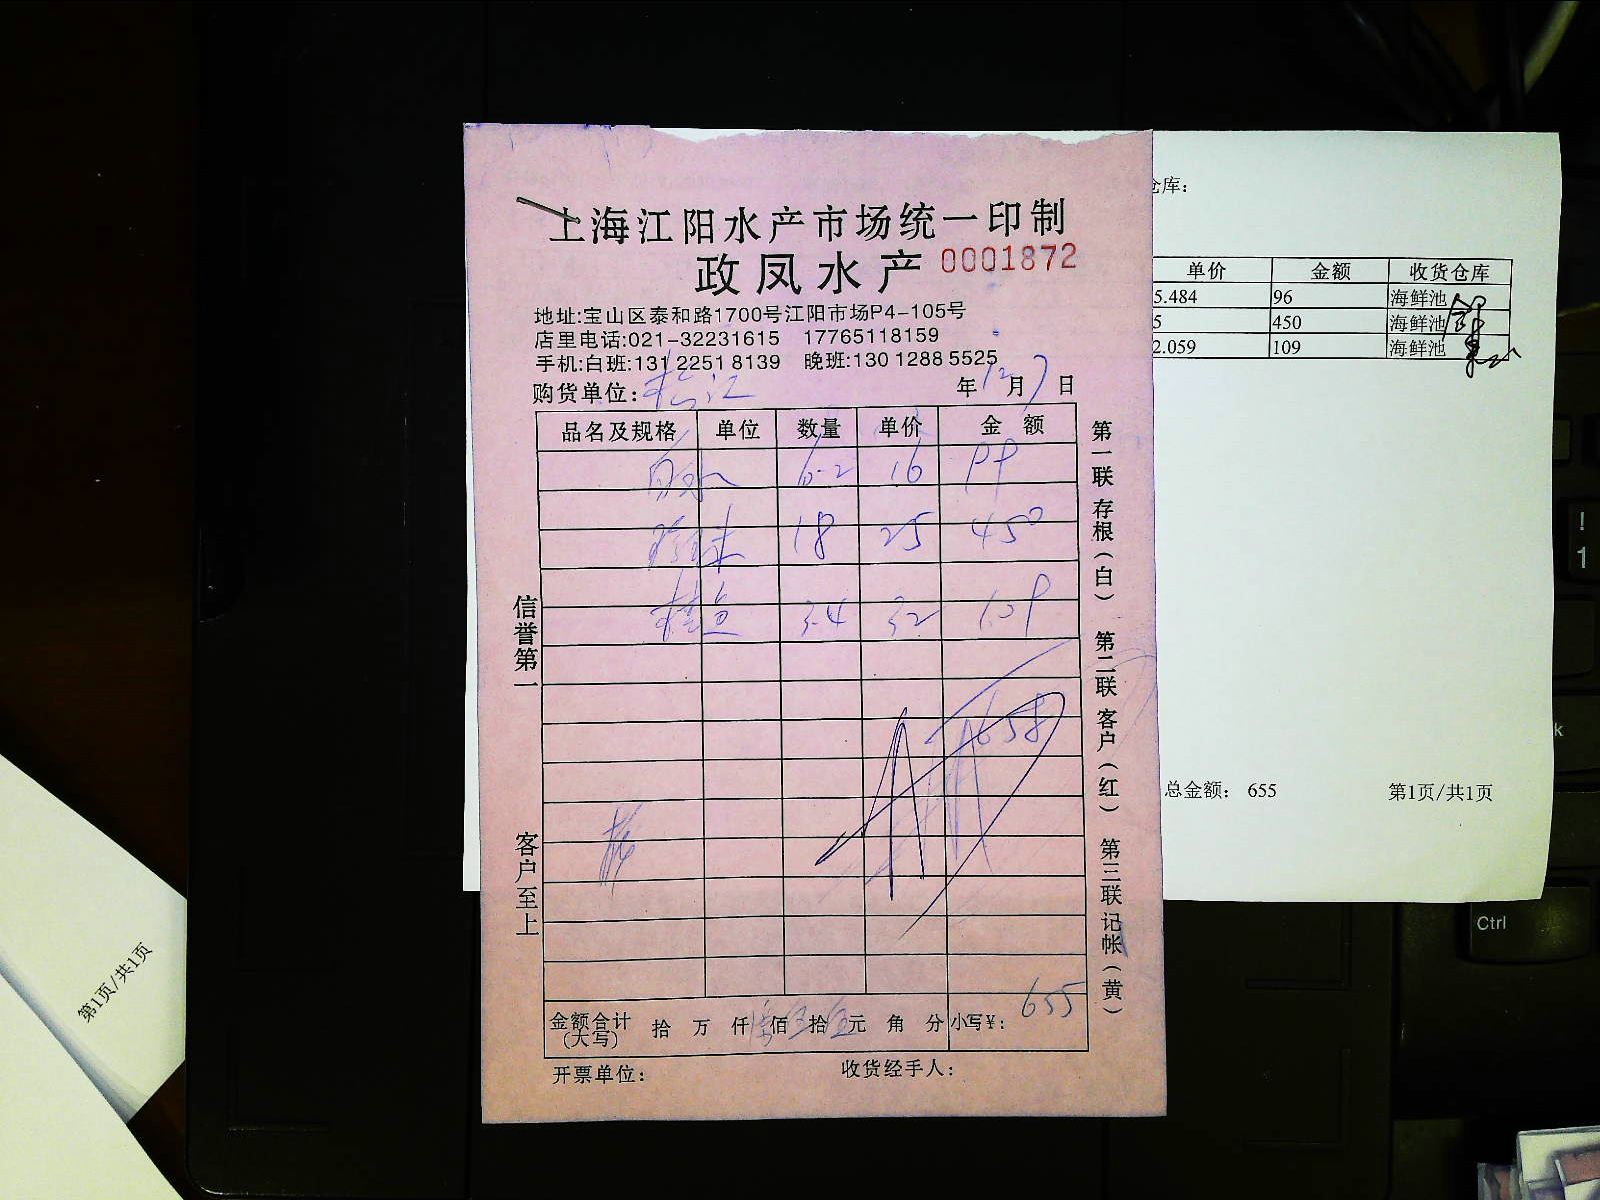 上海江阳水产市场统一印制
政凤水产 0001872
地址:宝山区泰和路1700号江阳市场P4-105号
店里电话:021-32231615 17765118159
手机:白班:131 2251 8139 晚班:130 1288 5525
购货单位:松江 年12月7日
品名及规格 单位 数量 单价 金 额
6.2 16 99
18 25 450
桂鱼 3.4 32 109
658
金额合计(大写) 拾 万 仟陆佰伍拾伍元 角 分 小写¥: 655
开票单位: 收货经手人:
信誉第一 客户至上
第一联 存根(白) 第二联 客户(红) 第三联 记帐(黄)
仓库:
单价 金额 收货仓库
5.484 96 海鲜池
5 450 海鲜池
2.059 109 海鲜池
总金额: 655 第1页/共1页
第1页/共1页
!
1
k
Ctrl